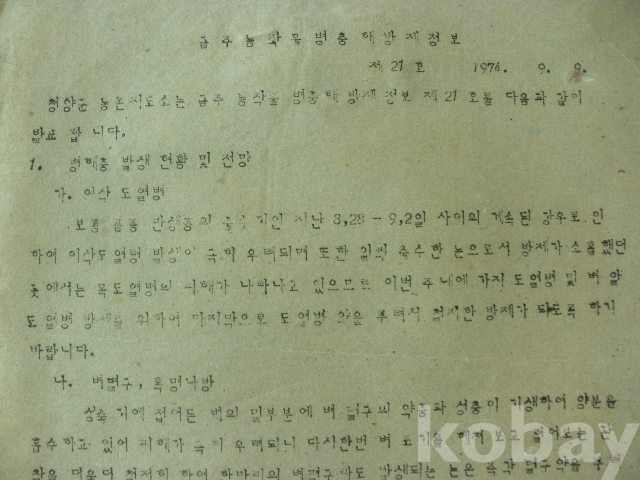 금주농작물병충해방제정보
제 21 호 1974. 9. 9.
청양군 농촌지도소는 금주 농작물 병충해 방제 정보 제 21 호를 다음과 같이
발표 합 니다.
1. 병해충 발생 현황 및 전망
가. 이삭 도열병
보통 품종 만생종의 출수 기인 지난 8,28 - 9,2일 사이의 계속된 강우로 인
하여 이삭도열병 발생이 극히 우려되며 또한 일찍 출수한 논으로서 방제가 소홀했던
곳에서는 목도열병의 피해가 나타나고 있으므로 이번 주내에 가지 도열병 및 벼 알
도열병 방제를 위하여 마지막으로 도열병 약을 뿌려서 철저한 방제가 되도록 하기
바랍니다.
나. 벼멸구, 혹명나방
성숙 기에 접어든 벼의 밑부분에 벼 멸구의 약충과 성충이 기생하여 양분을
흡수하고 있어 피해가 극히 우려되니 다시한번 벼 포기를 헤쳐 보고
철저히 하여 한마리의 벼멸구라도 발생되는 논은 즉각 멸구 약을
kobay